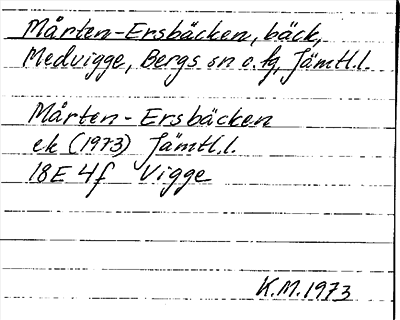 Mårten-Ersbäcken, bäck,
Medvigge, Bergs sn o. tg, Jämtl.l.
Mårten-Ersbäcken
ek (1973) Jämtl.l.
18E 4f Vigge
K.M. 1973